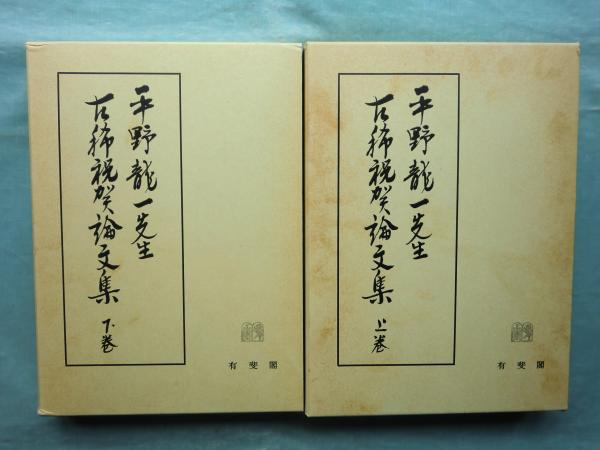 平野龍一先生
古稀祝賀論文集 上巻
有斐閣
平野龍一先生
古稀祝賀論文集 下巻
有斐閣